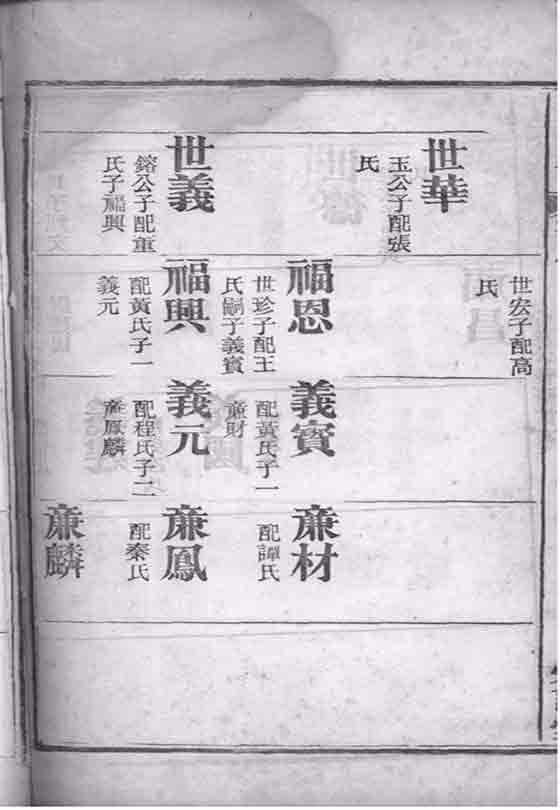 世華
玉公子配張
氏
世義
鎔公子配董
氏子福興
世宏子配高
氏
福恩
世珍子配王
氏嗣子義賓
福興
配黃氏子一
義元
義賓
配黃氏子一
亷財
義元
配程氏子二
亷鳳麟
亷材
配譚氏
亷鳳
配秦氏
亷麟